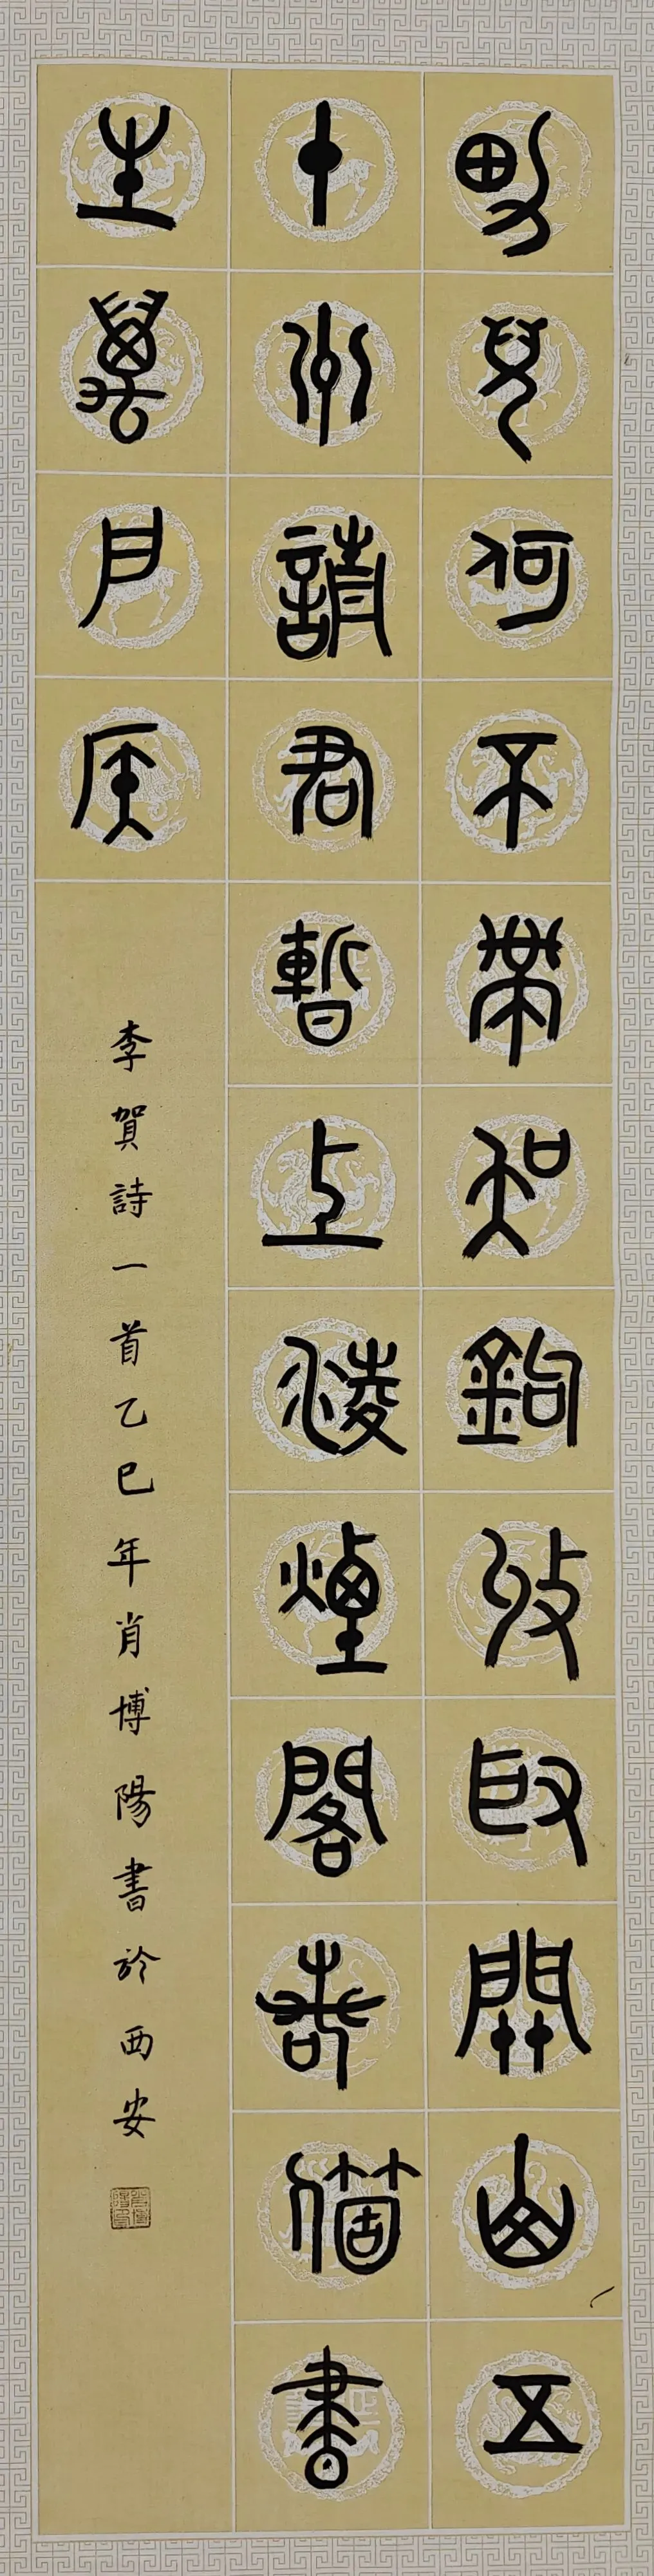 男兒何不帶吳鉤收取關山五
十州請君暫上凌煙閣若個書
生萬戶侯
李賀詩一首乙巳年肖博陽書於西安